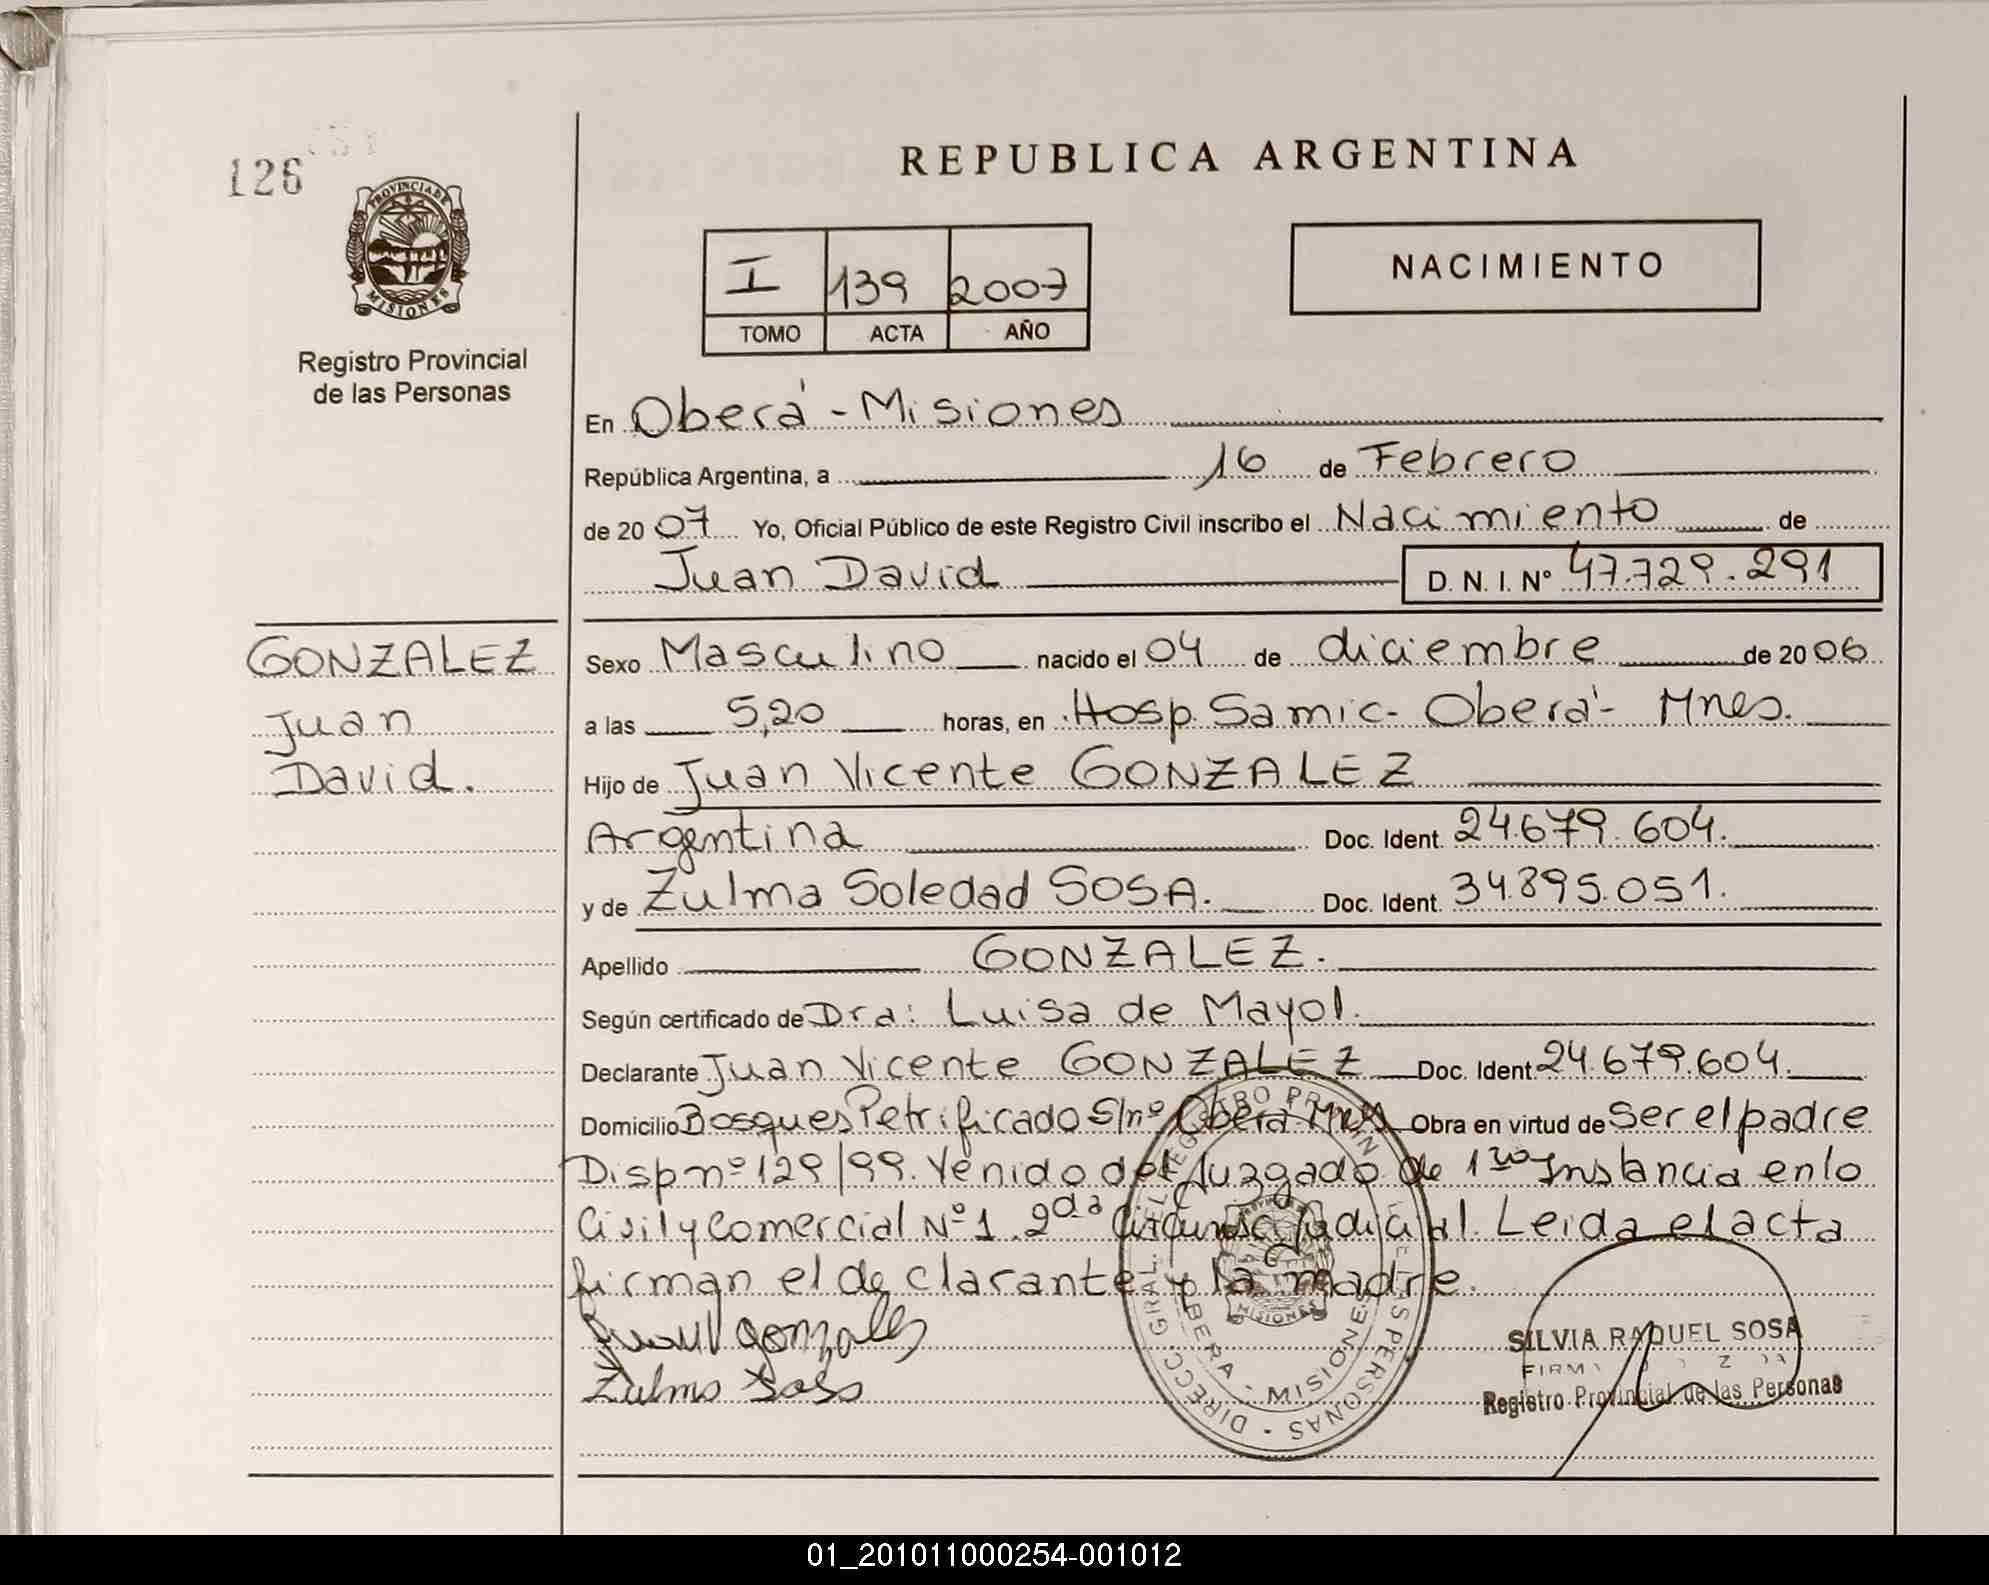 126
PROVINCIA DE
MISIONES
Registro Provincial
de las Personas
REPUBLICA ARGENTINA
I 139 2007
TOMO ACTA AÑO
NACIMIENTO
En Oberá - Misiones
República Argentina, a 16 de Febrero
de 20 07 Yo, Oficial Público de este Registro Civil inscribo el Nacimiento de
Juan David D. N. I. Nº 47.729.291
GONZALEZ
Juan
David.
Sexo Masculino nacido el 04 de diciembre de 20 06
a las 5,20 horas, en Hosp. Samic - Oberá - Mnes.
Hijo de Juan Vicente GONZALEZ
Argentina Doc. Ident. 24.679.604.
y de Zulma Soledad SOSA. Doc. Ident. 34.895.051.
Apellido GONZALEZ.
Según certificado de Dra: Luisa de Mayol.
Declarante Juan Vicente GONZALEZ Doc. Ident. 24.679.604.
Domicilio Bosques Petrificado S/nº Oberá Mnes Obra en virtud de Ser el padre
Disp nº 129/99. Venido del Juzgado de 1ra Instancia en lo
Civil y Comercial Nº 1. 2da Circunsc Judicial. Leida el acta
firman el de clarante y la madre.
Juan V Gonzalez
Zulma Sosa
DIRECC. GRAL. DEL REGISTRO PROVIN DE LAS PERSONAS
OBERA - MISIONES
MISIONES
SILVIA RAQUEL SOSA
Registro Provincial de las Personas
01_201011000254-001012